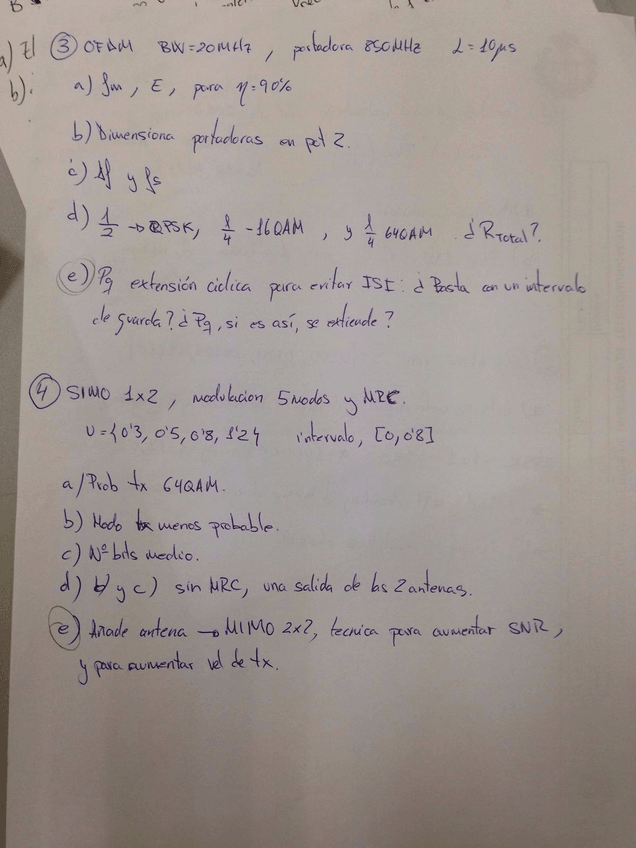 a) El
b):
③ OFDM BW=20MHz, portadora 850MHz L=10μs
a) fm, E, para η=90%
b) Dimensiona portadoras en pot 2.
c) Δf y fs
d) 1/2 → QPSK, 1/4 - 16QAM, y 1/4 64QAM. ¿RTotal?
e) Pq extensión cíclica para evitar ISI: ¿Basta con un intervalo
de guarda? ¿Pq, si es así, se extiende?
④ SIMO 1x2, modulacion 5 modos y MRC.
U={0'3, 0'5, 0'8, 1'2} intervalo, [0,0'8]
a/ Prob tx 64QAM.
b) Modo menos probable.
c) Nº bits medio.
d) b) y c) sin MRC, una salida de las 2 antenas.
e) Añade antena → MIMO 2x2, tecnica para aumentar SNR,
y para aumentar vel de tx.